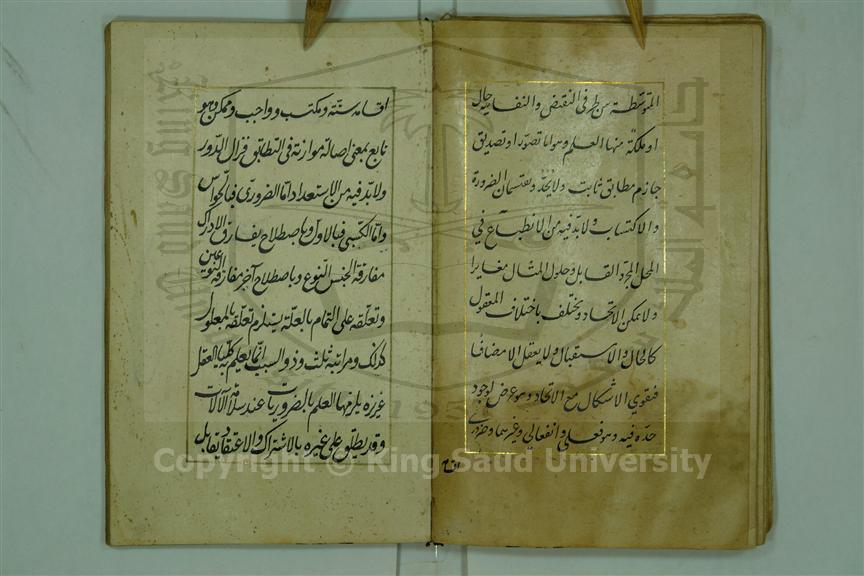 المتوسطة بين طرفى النقيض والنفسانية حال
او ملكة منها العلم وهو اما تصور او تصديق
جازم مطابق ثابت ولا يحد ويقتسمان الضرورة
والاكتساب ولا بد فيه من الانطباع فى
المحل المجرد القابل وحلول المثال مغايرا
ولا يمكن الاتحاد ويختلف باختلاف المعقول
كالحال والاستقبال ولا يعقل الا مضافا
فيقوى الاشكال مع الاتحاد وهو عرض لوجود
حده فيه وهو فعلى وانفعالى وغيرهما وضرورى
اقسا
اقسامه ستة ومكتسب وواجب وممكن وهو
تابع بمعنى اصالة موازنه فى التطابق فزال الدور
ولا بد فيه من الاستعداد اما الضرورى فبالحواس
واما الكسبى فبالاول وباصطلاح يفارق الادراك
مفارقة الجنس النوع وباصطلاح آخر مفارقة النوعين
وتعلقه على التمام بالعلة يستلزم تعلقه بالمعلول
كذلك ومراتبه ثلث وذو السبب انما يعلم كليا العقل
غريزة يلزمها العلم بالضروريات عند سلامة الآلات
وقد يطلق على غيره بالاشتراك والاعتقاد يقابل
جامعة الملك سعود
King Saud University
1957
Copyright © King Saud University